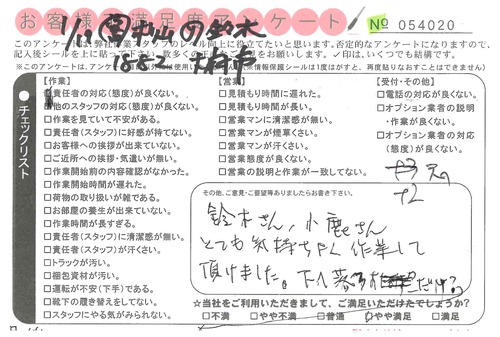 お客様満足度アンケート
№ 054020
このアンケートは、弊社作業スタッフのレベル向上に役立てたいと思います。否定的なアンケートになりますので、
記入後シールを上に貼ってください。数多くの正しい
✓印は、いくつでも結構です。
※このアンケートは、
情報保護シールは1度はがすと、再度貼りなおすことはできません)
チェックリスト
【作業】
責任者の対応(態度)が良くない。
他のスタッフの対応(態度)が良くない。
□作業を見ていて不安がある。
□責任者(スタッフ)に好感が持てない。
□お客様への挨拶が出来ていない。
□ご近所への挨拶・気遣いが無い。
□作業開始前の内容確認がなかった。
□作業開始時間が遅れた。
□荷物の取り扱いが雑である。
□お部屋の養生が出来ていない。
□作業時間が長すぎる。
□責任者(スタッフ)に清潔感が無い。
□責任者(スタッフ)が汗くさい。
□トラックが汚い。
□梱包資材が汚い。
□運転が不安(下手)である。
□靴下の履き替えをしてない。
□スタッフにやる気がみられない。
【営業】
□見積もり時間に遅れた。
□見積もり時間が長い。
□営業マンに清潔感が無い。
□営業マンが煙草くさい。
□営業マンが汗くさい。
□営業態度が良くない。
□営業の説明と作業が一致してない。
【受付・その他】
□電話の対応が良くない。
□オプション業者の説明
・作業が良くない。
□オプション業者の対応
(態度)が良くない。
その他、ご意見・ご要望等ありましたらお書き下さい。
鈴木さん、小鹿さん
とても気持ちよく作業して
頂けました。
★当社をご利用いただきまして、ご満足いただけたでしょうか?
□不満 □やや不満 □普通 □やや満足 □満足